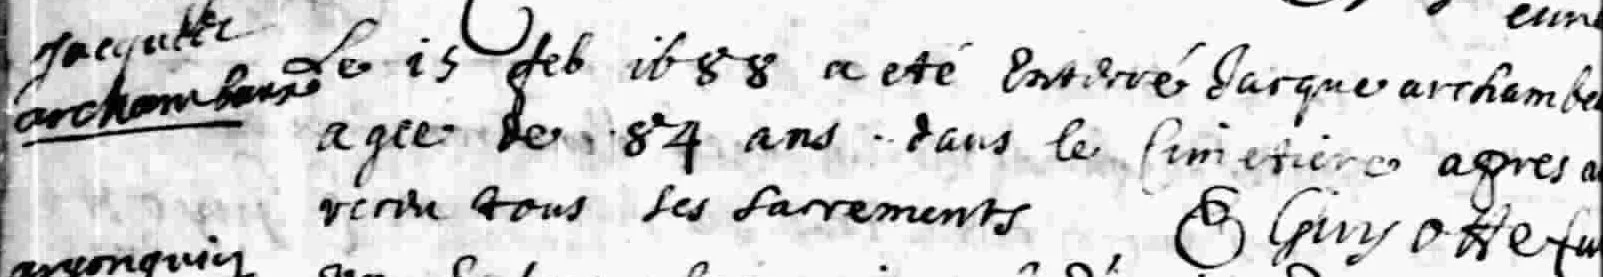 eune
Jacques
archambaux
Le 15 feb 1688 a eté Enterré Jacque archambe
agee de 84 ans dans le Cimetiere apres a
recu tous ses sacrements
E Guyotte